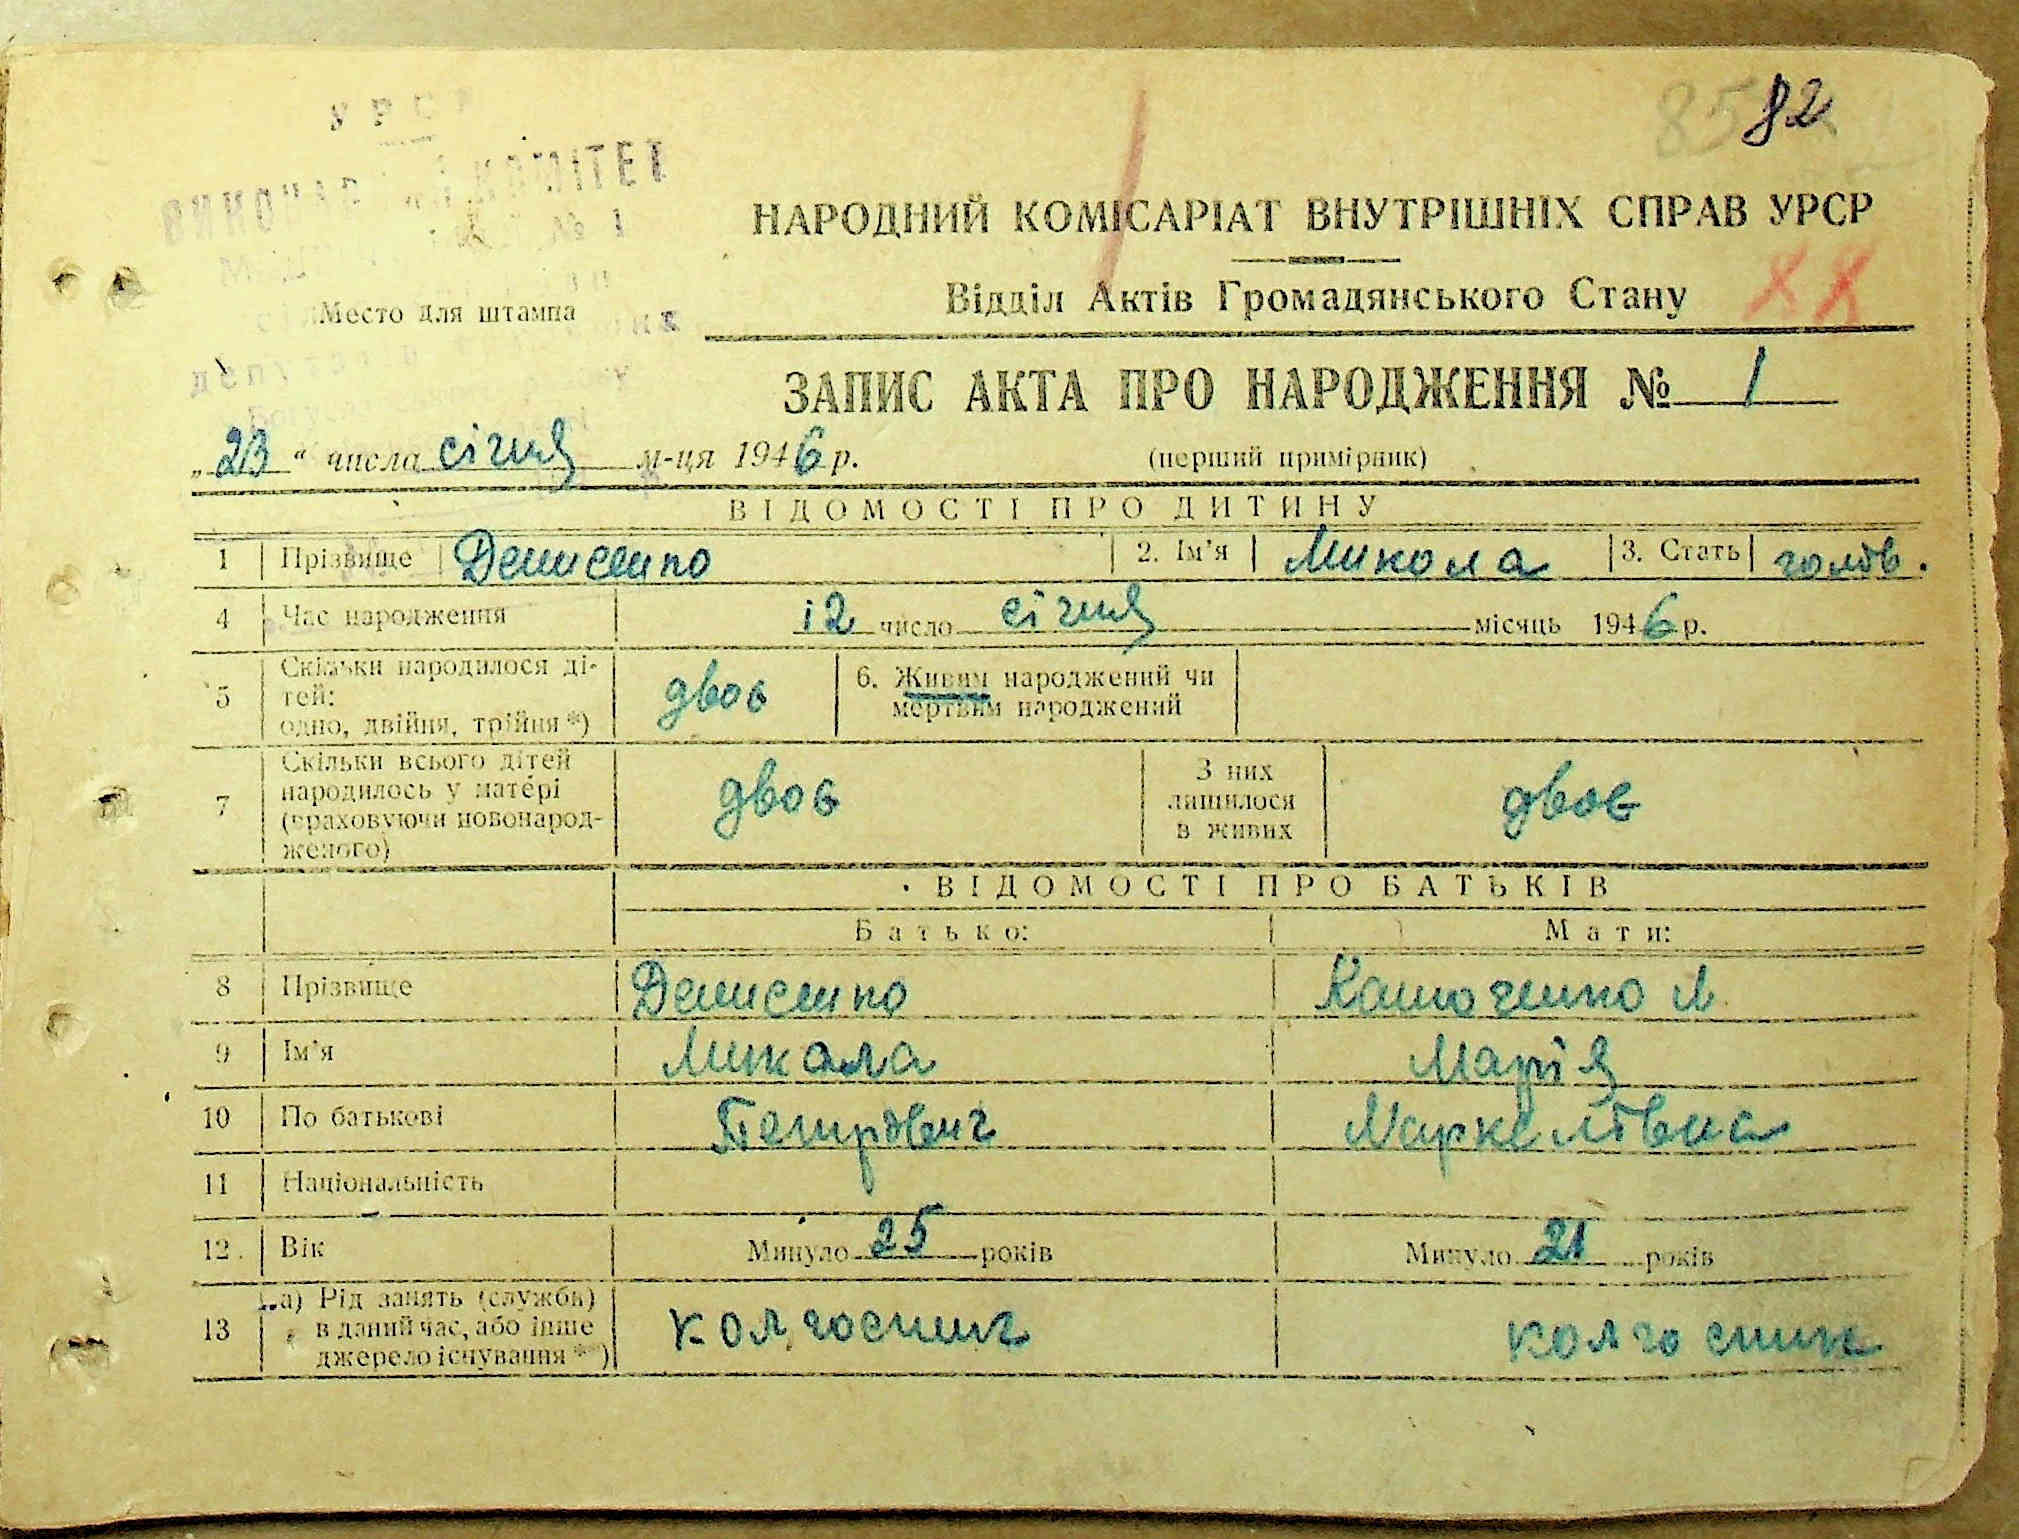 82
УРСР
КОМІТЕТ
№ 1
НАРОДНИЙ КОМІСАРІАТ ВНУТРІШНІХ СПРАВ УРСР
Место для штампа
Відділ Актів Громадянського Стану
ХХ
ЗАПИС АКТА ПРО НАРОДЖЕННЯ № 1
„23“ числа січня м-ця 1946 р.
(перший примірник)
ВІДОМОСТІ ПРО ДИТИНУ
1 Прізвище Денисенко 2. Ім’я Микола 3. Стать
4 Час народження 12 число січня місяць 1946 р.
5 Скільки народилося ді-
тей:
одно, двійня, трійня *) двоє
6. Живим народжений чи
мертвим народжений
7 Скільки всього дітей
народилось у матері
(враховуючи новонарод-
женого) двоє
З них
лишилося
в живих двоє
ВІДОМОСТІ ПРО БАТЬКІВ
Батько: Мати:
8 Прізвище Денисенко
9 Ім’я Микола Марія
10 По батькові Петрович Маркелівна
11 Національність
12. Вік Минуло 25 років Минуло 21 років
13 а) Рід занять (служби)
в даний час, або інше
джерело існування **) колгоспник колгоспник